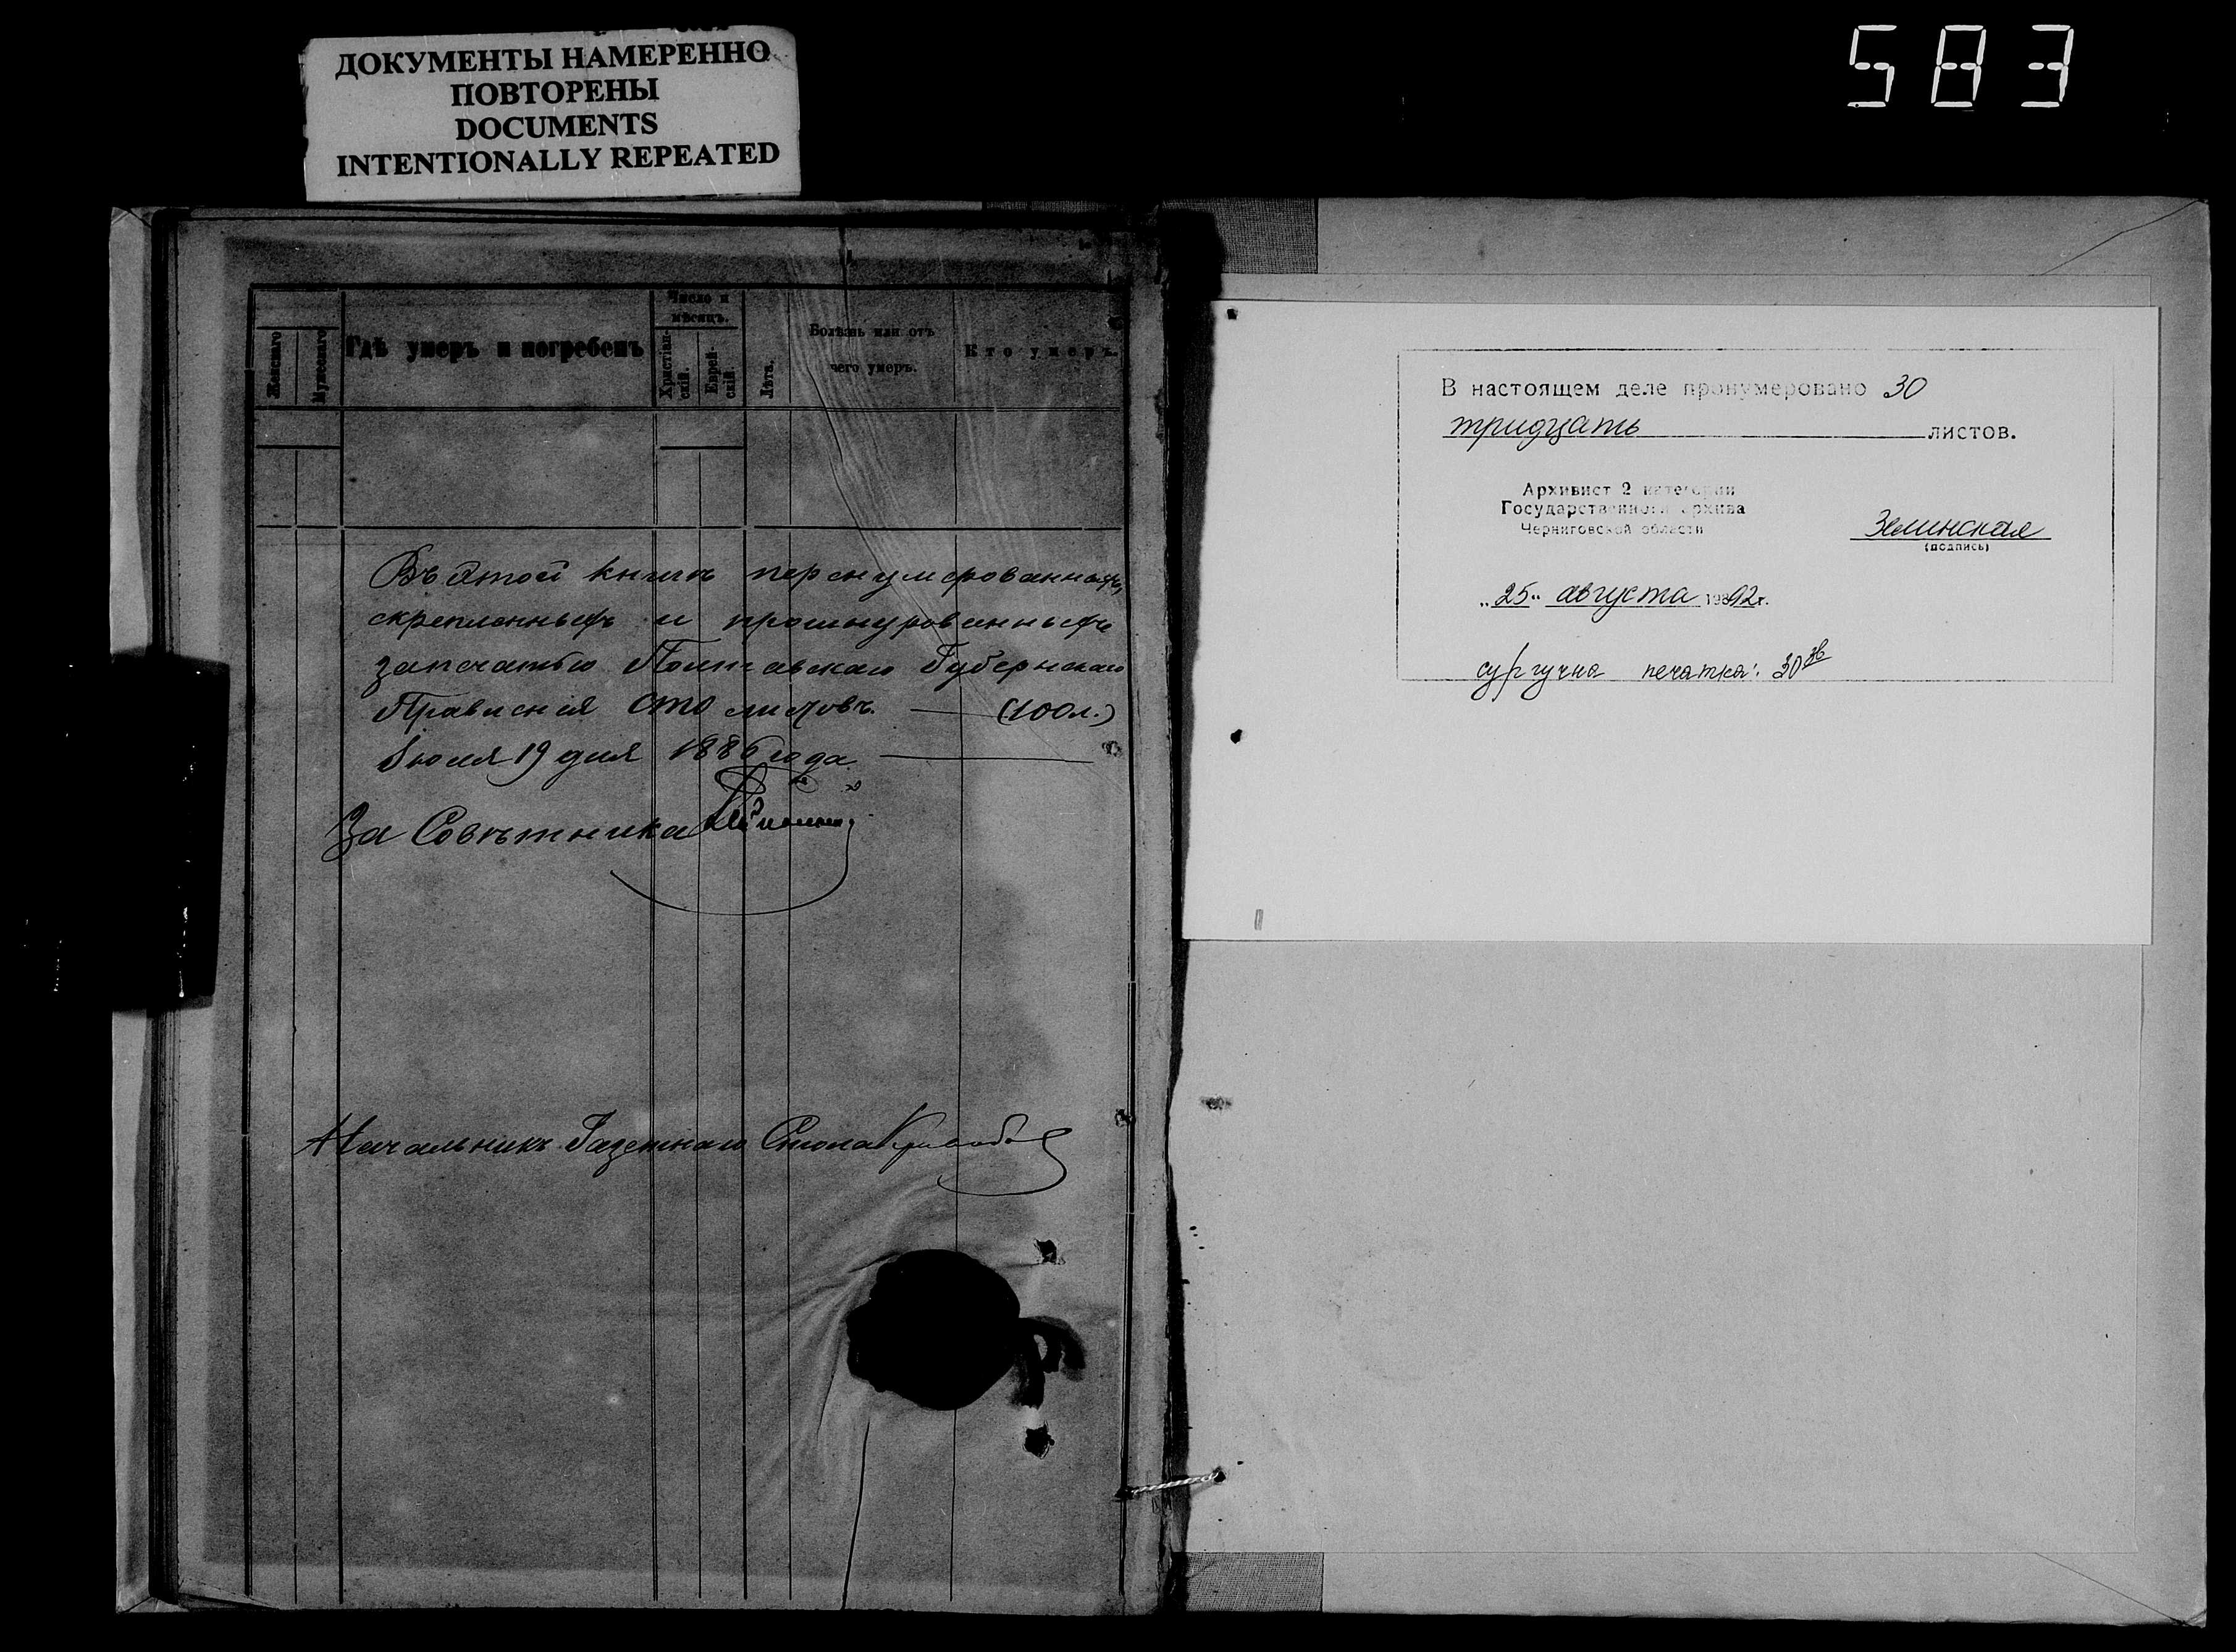 ДОКУМЕНТЫ НАМЕРЕННО
ПОВТОРЕНЫ
DOCUMENTS
INTENTIONALLY REPEATED
583
Женскаго
Мужескаго
Гдѣ умеръ и погребенъ
Число и мѣсяцъ.
Христіан-скій.
Еврей-скій.
Лѣта.
Болѣзнь или отъ
чего умеръ.
Кто умеръ.
Въ этой книгѣ перенумерованныхъ,
скрепленныхъ и прошнурованныхъ
запечатью Полтавскаго Губернскаго
Правленія сто листовъ. (100л.)
Іюля 19 дня 1886 года
За Совѣтника
Начальникъ Газетнаго Стола
В настоящем деле пронумеровано 30
тридцать листов.
Архивист 2 категории
Государственного архива
Черниговской области
(подпись)
"25" августа 1992г.
сургучна печатка: 30 зв